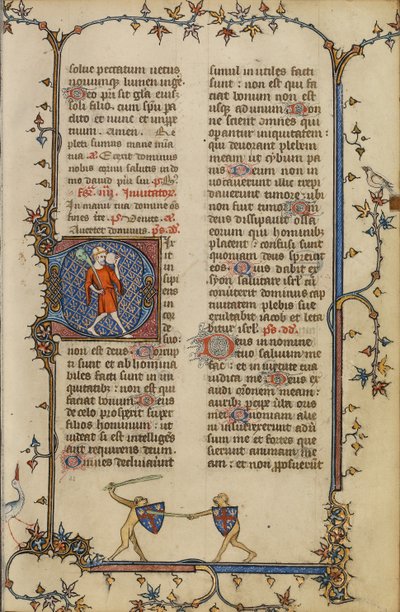 solue peccatum uetus
nouumque lumen inge.
Deo pri sit gla eius
soli filio. cum spu pa
Amen.
mane
dominus
nobis salutis in do
mo dauid
Inuitator
In manu tua domine
Dixit
in
non est deus. Corrup
ti sunt et ab homina
biles facti sunt in in
iquitatibus: non est qui
faciat bonum. Deus
de celo prospexit super
filios hominum: ut
uideat si est intelliges
aut requirens deum.
Omnes declinauerunt
simul inutiles facti
sunt: non est qui fa
ciat bonum non est
usque ad unum. Non
ne scient omnes qui
operantur iniquitatem:
qui deuorant plebem
meam ut cybum pa
nis. Deum non in
uocauerunt illic trepi
dauerunt timore ubi
non fuit timor. Qm
deus dissipauit ossa
eorum qui hominibus
placent: confusi sunt
quoniam deus spreuit
eos. Quis dabit ex
syon salutare isrl: cum
conuerterit dominus cap
tiuitatem plebis sue
exultabit iacob et leta
bitur isrl. ps. dd.
Deus in nomine
tuo saluum me
fac: et in uirtute tua
iudica me. Deus ex
audi orationem meam:
auribus percipe uerba oris
mei. Quoniam alie
ni insurrexerunt aduersum
me et fortes que
sierunt animam me
am: et non posuerunt